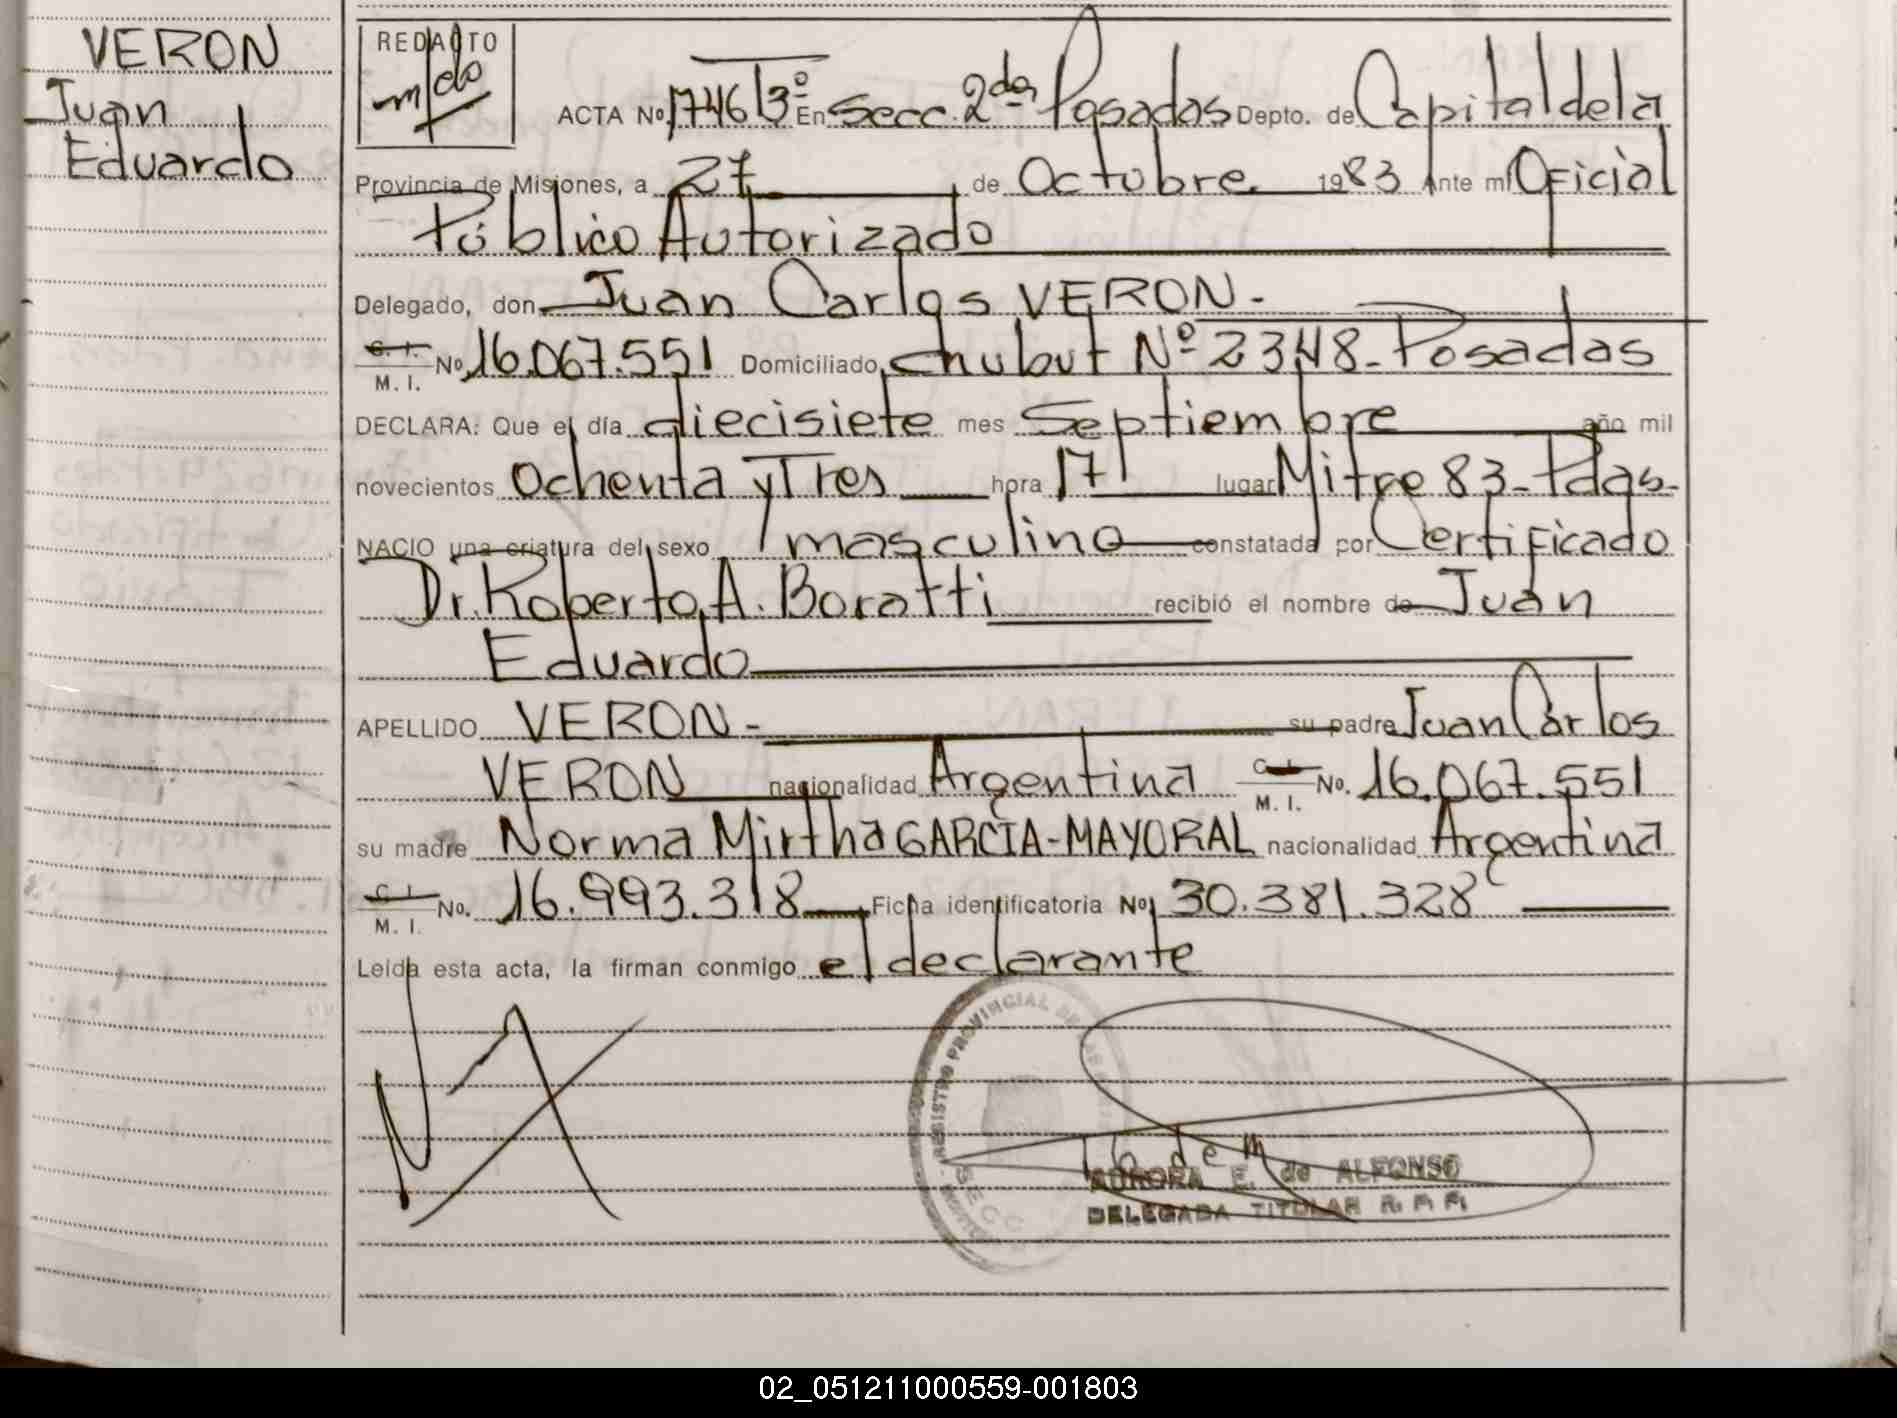 VERON
Juan
Eduardo
REDACTO
ACTA Nº 1746 T3º En Secc. 2da Posadas Depto. de Capital de la
Provincia de Misiones, a 27 de Octubre 1983 Ante mí Oficial
Público Autorizado
Delegado, don Juan Carlos VERON.-
C. I. M. I. No. 16.067.551 Domiciliado Chubut Nº 2348-Posadas
DECLARA: Que el día diecisiete mes Septiembre año mil
novecientos Ochenta y Tres hora 17 lugar Mitre 83-Pdas-
NACIO una criatura del sexo masculino constatada por Certificado
Dr. Roberto A. Boratti recibió el nombre de Juan
Eduardo
APELLIDO VERON- su padre Juan Carlos
VERON nacionalidad Argentina C. I. M. I. No. 16.067.551
su madre Norma Mirtha GARCIA-MAYORAL nacionalidad Argentina
C. I. M. I. No. 16.993.318 Ficha identificatoria No 30.381.328
Leída esta acta, la firman conmigo el declarante
REGISTRO PROVINCIAL DE LAS
SECC
AURORA E. de ALFONSO
DELEGADA TITULAR R. P. P.
02_051211000559-001803